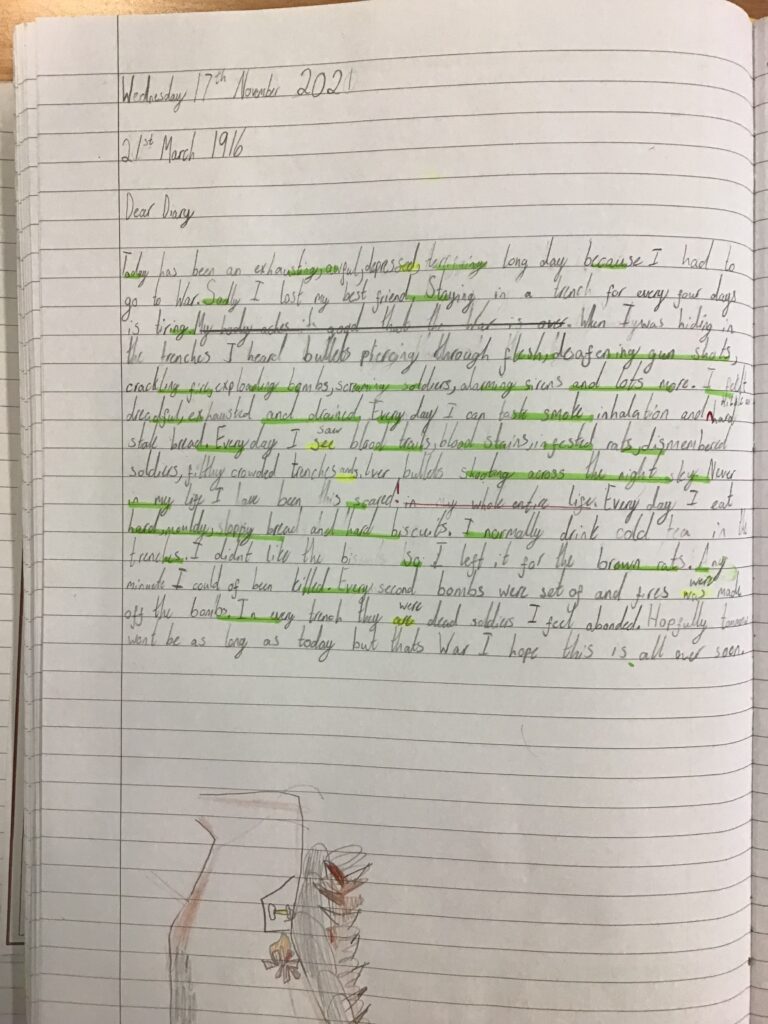 Wednesday 17th November 2021
21st March 1916
Dear Diary
Today has been an exhausting, awful, depressed, terrifying long day because I had to
go to War. Sadly I lost my best friend. Staying in a trench for every four days
is tiring. My body aches it good that the War is over. When I was hiding in
the trenches I heard bullets piercing through flesh, deafening gun shots,
crackling fire, exploading bombs, screaming soldiers, alarming sirens and lots more. I felt
dreadful, exhausted and drained. Every day I can taste smoke inhalation and hard
stale bread. Every day I see saw blood trails, blood stains, infested rats, dismembered
soldiers, filthy crowded trenches and bullets shooting across the night sky. Never
in my life I have been this scared! in my whole entire life. Every day I eat
hard, mouldy, sloppy bread and hard biscuits. I normally drink cold tea in the
trenches. I didnt like the so I left it for the brown rats. Any
minuete I could of been killed. Every second bombs were set of and fires was were made
off the bombs. In every trench they are were dead soldiers I feel abonded. Hopfully
wont be as long as today but thats War I hope this is all over soon.